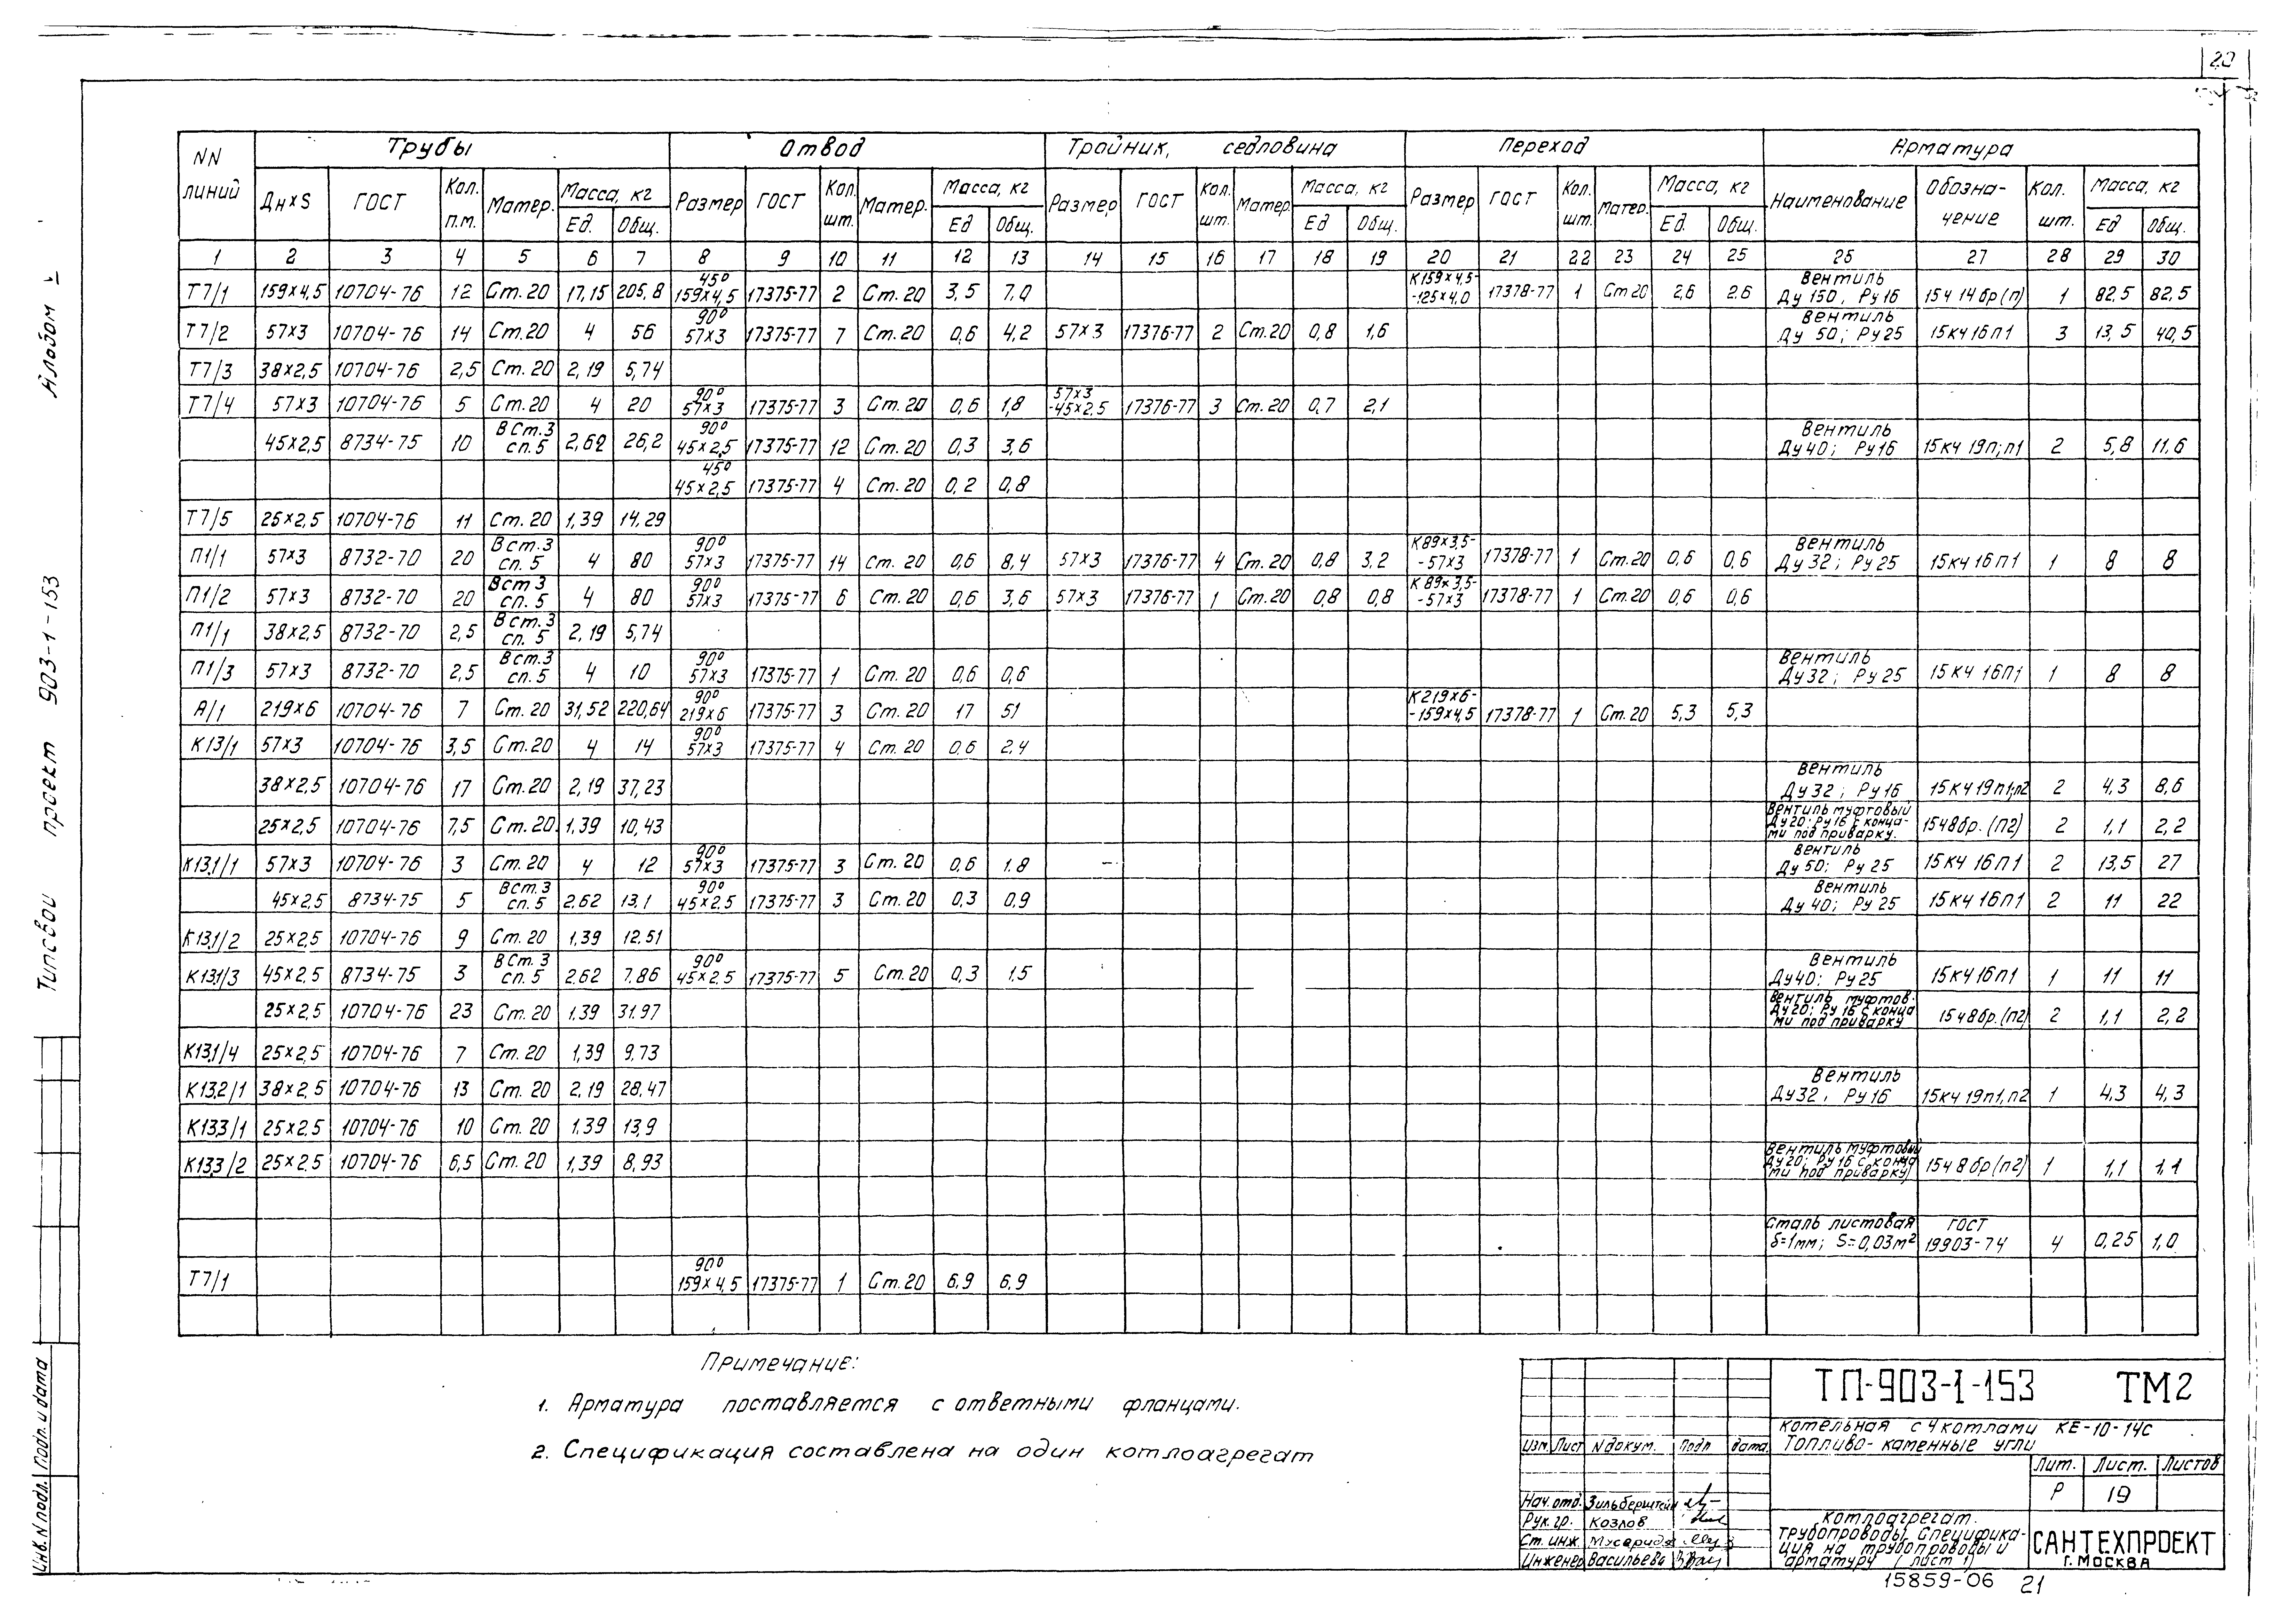 20
Альбом
Типовой проект 903-1-153
NN линий | Трубы | Отвод | Тройник, седловина | Переход | Арматура
Дн×S | ГОСТ | Кол. п.м. | Матер. | Масса, кг | Размер | ГОСТ | Кол. шт. | Матер. | Масса, кг | Размер | ГОСТ | Кол. шт. | Матер. | Масса, кг | Размер | ГОСТ | Кол. шт. | Матер. | Масса, кг | Наименование | Обозначение | Кол. шт. | Масса, кг
Ед. | Общ. | Ед | Общ. | Ед | Общ. | Ед. | Общ. | Ед | Общ.
1 | 2 | 3 | 4 | 5 | 6 | 7 | 8 | 9 | 10 | 11 | 12 | 13 | 14 | 15 | 16 | 17 | 18 | 19 | 20 | 21 | 22 | 23 | 24 | 25 | 26 | 27 | 28 | 29 | 30
Т7/1 | 159×4,5 | 10704-76 | 12 | Ст. 20 | 17,15 | 205,8 | 45° 159×4,5 | 17375-77 | 2 | Ст. 20 | 3,5 | 7,0 | К159×4,5-125×4,0 | 17378-77 | 1 | Ст 20 | 2,6 | 2.6 | Вентиль Ду 150, Ру16 | 15ч 14бр(п) | 1 | 82.5 | 82,5
Т7/2 | 57×3 | 10704-76 | 14 | Ст.20 | 4 | 56 | 90° 57×3 | 17375-77 | 7 | Ст. 20 | 0,6 | 4,2 | 57×3 | 17376-77 | 2 | Ст.20 | 0,8 | 1,6 | Вентиль Ду 50; Ру25 | 15кч16п1 | 3 | 13,5 | 40,5
Т7/3 | 38×2,5 | 10704-76 | 2,5 | Ст. 20 | 2,19 | 5,74
Т7/4 | 57×3 | 10704-76 | 5 | Ст.20 | 4 | 20 | 90° 57×3 | 17375-77 | 3 | Ст. 20 | 0,6 | 1,8 | 57×3-45×2,5 | 17376-77 | 3 | Ст. 20 | 0,7 | 2,1
45×2,5 | 8734-75 | 10 | В Ст.3 сп.5 | 2,62 | 26,2 | 90° 45×2,5 | 17375-77 | 12 | Ст. 20 | 0,3 | 3,6 | Вентиль Ду40; Ру16 | 15кч 19п;п1 | 2 | 5,8 | 11,6
45° 45×2,5 | 17375-77 | 4 | Ст. 20 | 0,2 | 0,8
Т7/5 | 25×2,5 | 10704-76 | 11 | Ст. 20 | 1,39 | 14,29
П1/1 | 57×3 | 8732-70 | 20 | Вст.3 сп.5 | 4 | 80 | 90° 57×3 | 17375-77 | 14 | Ст. 20 | 0,6 | 8,4 | 57×3 | 17376-77 | 4 | Ст. 20 | 0,8 | 3,2 | К89×3,5--57×3 | 17378-77 | 1 | Ст.20 | 0,6 | 0,6 | Вентиль Ду 32; Ру 25 | 15кч 16п1 | 1 | 8 | 8
П1/2 | 57×3 | 8732-70 | 20 | Вст 3 сп.5 | 4 | 80 | 90° 57×3 | 17375-77 | 6 | Ст. 20 | 0,6 | 3,6 | 57×3 | 17376-77 | 1 | Ст.20 | 0,8 | 0,8 | К 89×3,5--57×3 | 17378-77 | 1 | Ст.20 | 0,6 | 0,6
П1/1 | 38×2,5 | 8732-70 | 2,5 | Вст.3 сп.5 | 2,19 | 5,74
П1/3 | 57×3 | 8732-70 | 2,5 | Вст.3 сп.5 | 4 | 10 | 90° 57×3 | 17375-77 | 1 | Ст. 20 | 0,6 | 0,6 | Вентиль Ду32; Ру 25 | 15кч 16п1 | 1 | 8 | 8
А/1 | 219×6 | 10704-76 | 7 | Ст. 20 | 31,52 | 220,64 | 90° 219×6 | 17375-77 | 3 | Ст. 20 | 17 | 51 | К219×6--159×4,5 | 17378-77 | 1 | Ст.20 | 5,3 | 5,3
К13/1 | 57×3 | 10704-76 | 3,5 | Ст.20 | 4 | 14 | 90° 57×3 | 17375-77 | 4 | Ст. 20 | 0,6 | 2,4
38×2,5 | 10704-76 | 17 | Ст.20 | 2,19 | 37,23 | Вентиль Ду32; Ру16 | 15кч19п1,п2 | 2 | 4,3 | 8,6
25×2,5 | 10704-76 | 7,5 | Ст. 20 | 1,39 | 10,43 | Вентиль муфтовый Ду20; Ру16 с концами под приварку. | 15ч8бр.(п2) | 2 | 1,1 | 2,2
К13.1/1 | 57×3 | 10704-76 | 3 | Ст.20 | 4 | 12 | 90° 57×3 | 17375-77 | 3 | Ст. 20 | 0,6 | 1.8 | Вентиль Ду50; Ру 25 | 15кч 16п1 | 2 | 13,5 | 27
45×2,5 | 8734-75 | 5 | Вст.3 сп.5 | 2,62 | 13,1 | 90° 45×2,5 | 17375-77 | 3 | Ст.20 | 0,3 | 0,9 | Вентиль Ду 40; Ру 25 | 15кч 16п1 | 2 | 11 | 22
К13.1/2 | 25×2,5 | 10704-76 | 9 | Ст. 20 | 1,39 | 12,51
К13.1/3 | 45×2,5 | 8734-75 | 3 | ВСт. 3 сп.5 | 2.62 | 7.86 | 90° 45×2,5 | 17375-77 | 5 | Ст. 20 | 0,3 | 1,5 | Вентиль Ду40; Ру25 | 15кч16п1 | 1 | 11 | 11
25×2,5 | 10704-76 | 23 | Ст. 20 | 1,39 | 31.97 | Вентиль муфтов. Ду20; Ру 16 с концами под приварку | 15ч8бр.(п2) | 2 | 1,1 | 2,2
К13.1/4 | 25×2,5 | 10704-76 | 7 | Ст. 20 | 1,39 | 9,73
К13.2/1 | 38×2,5 | 10704-76 | 13 | Ст. 20 | 2,19 | 28,47 | Вентиль Ду32, Ру16 | 15кч 19п1,п2 | 1 | 4,3 | 4,3
К13.3/1 | 25×2,5 | 10704-76 | 10 | Ст. 20 | 1,39 | 13,9
К13.3/2 | 25×2,5 | 10704-76 | 6,5 | Ст. 20 | 1,39 | 8,93 | Вентиль муфтовый Ду20; Ру16 с концами под приварку | 15ч 8бр(п2) | 1 | 1,1 | 1,1
Сталь листовая δ=1мм; S=0,03м² | ГОСТ 19903-74 | 4 | 0,25 | 1,0
Т7/1 | 90° 159×4,5 | 17375-77 | 1 | Ст.20 | 6,9 | 6,9
Примечание:
1. Арматура поставляется с ответными фланцами.
2. Спецификация составлена на один котлоагрегат
ТП-903-1-153 ТМ2
Котельная с 4 котлами КЕ-10-14с
Топливо- каменные угли
Изм. Лист N докум. Подп дата.
Лит. Лист. Листов
Р 19
Нач.отд. Зильберштейн
Рук.гр. Козлов
Ст. инж.
Инженер Васильева
Котлоагрегат.
Трубопроводы. Специфика-
ция на трубопроводы и
арматуру (лист 1)
САНТЕХПРОЕКТ
г.Москва
15859-06 21
Инв.N подл. Подп. и дата